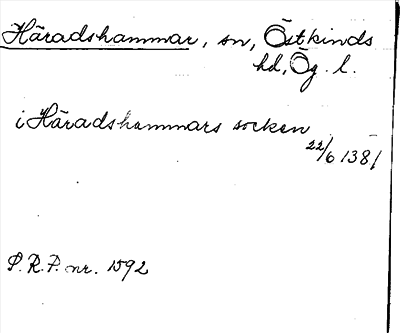 Häradshammar, sn, Östkinds
hd, Ög. l.
i Häradshammars socken
22/6 1381
P.R.P. nr. 1592